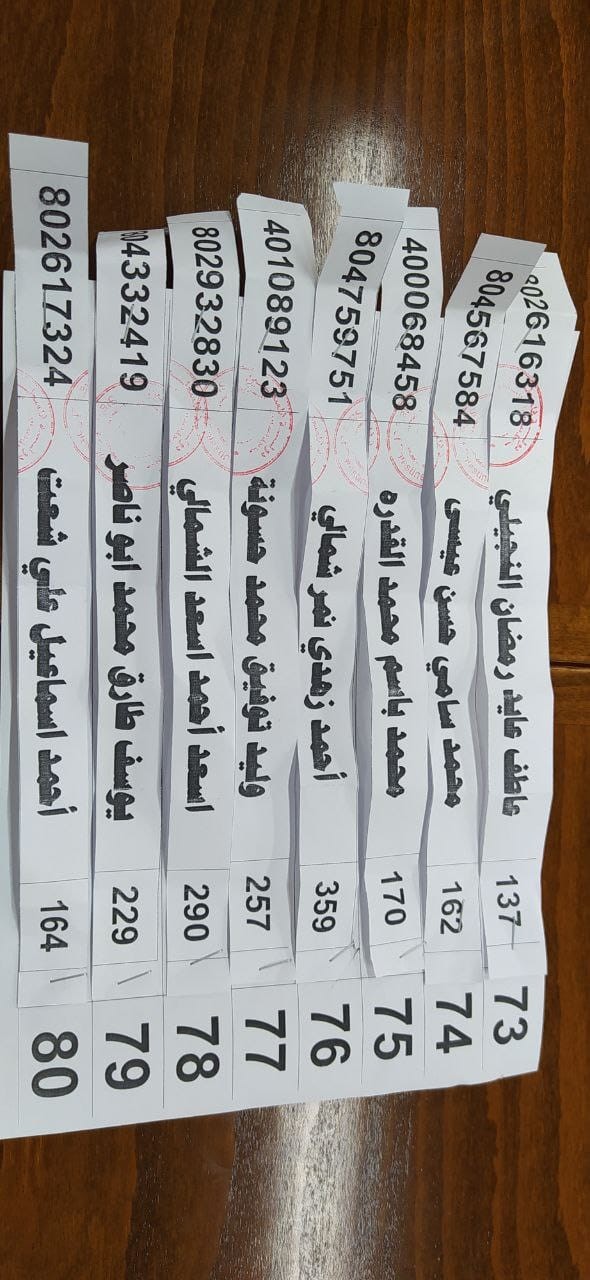 73 137 عاطف عايد رمضان النجيلي 802616318
74 162 محمد سامي حسن عيسى 804567584
75 170 محمد باسم محمد القدره 400068458
76 359 أحمد زهدي نمر شمالي 804759751
77 257 وليد توفيق محمد حسونة 401089123
78 290 اسعد أحمد اسعد الشمالي 802932830
79 229 يوسف طارق محمد ابو ناصر 804332419
80 164 أحمد اسماعيل علي شعت 802617324